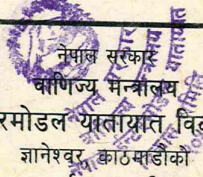 नेपाल सरकार
वाणिज्य मन्त्रालय
रमोडल यातायात वि
ज्ञानेश्वर, काठमाडौंको